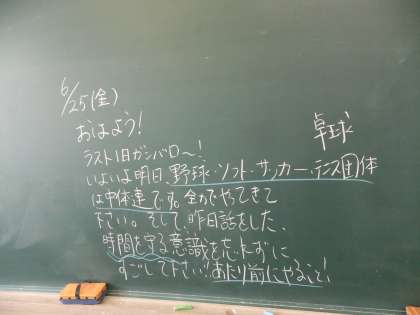 6/25(金)
おはよう!
ラスト1日ガンバロ〜!
卓球
いよいよ明日、野球・ソフト・サッカー・テニス団体
は中体連です。全力でやってきて
下さい。そして、昨日話をした、
時間を守る意識を忘れずに
すごして下さい!!あたり前にやること!